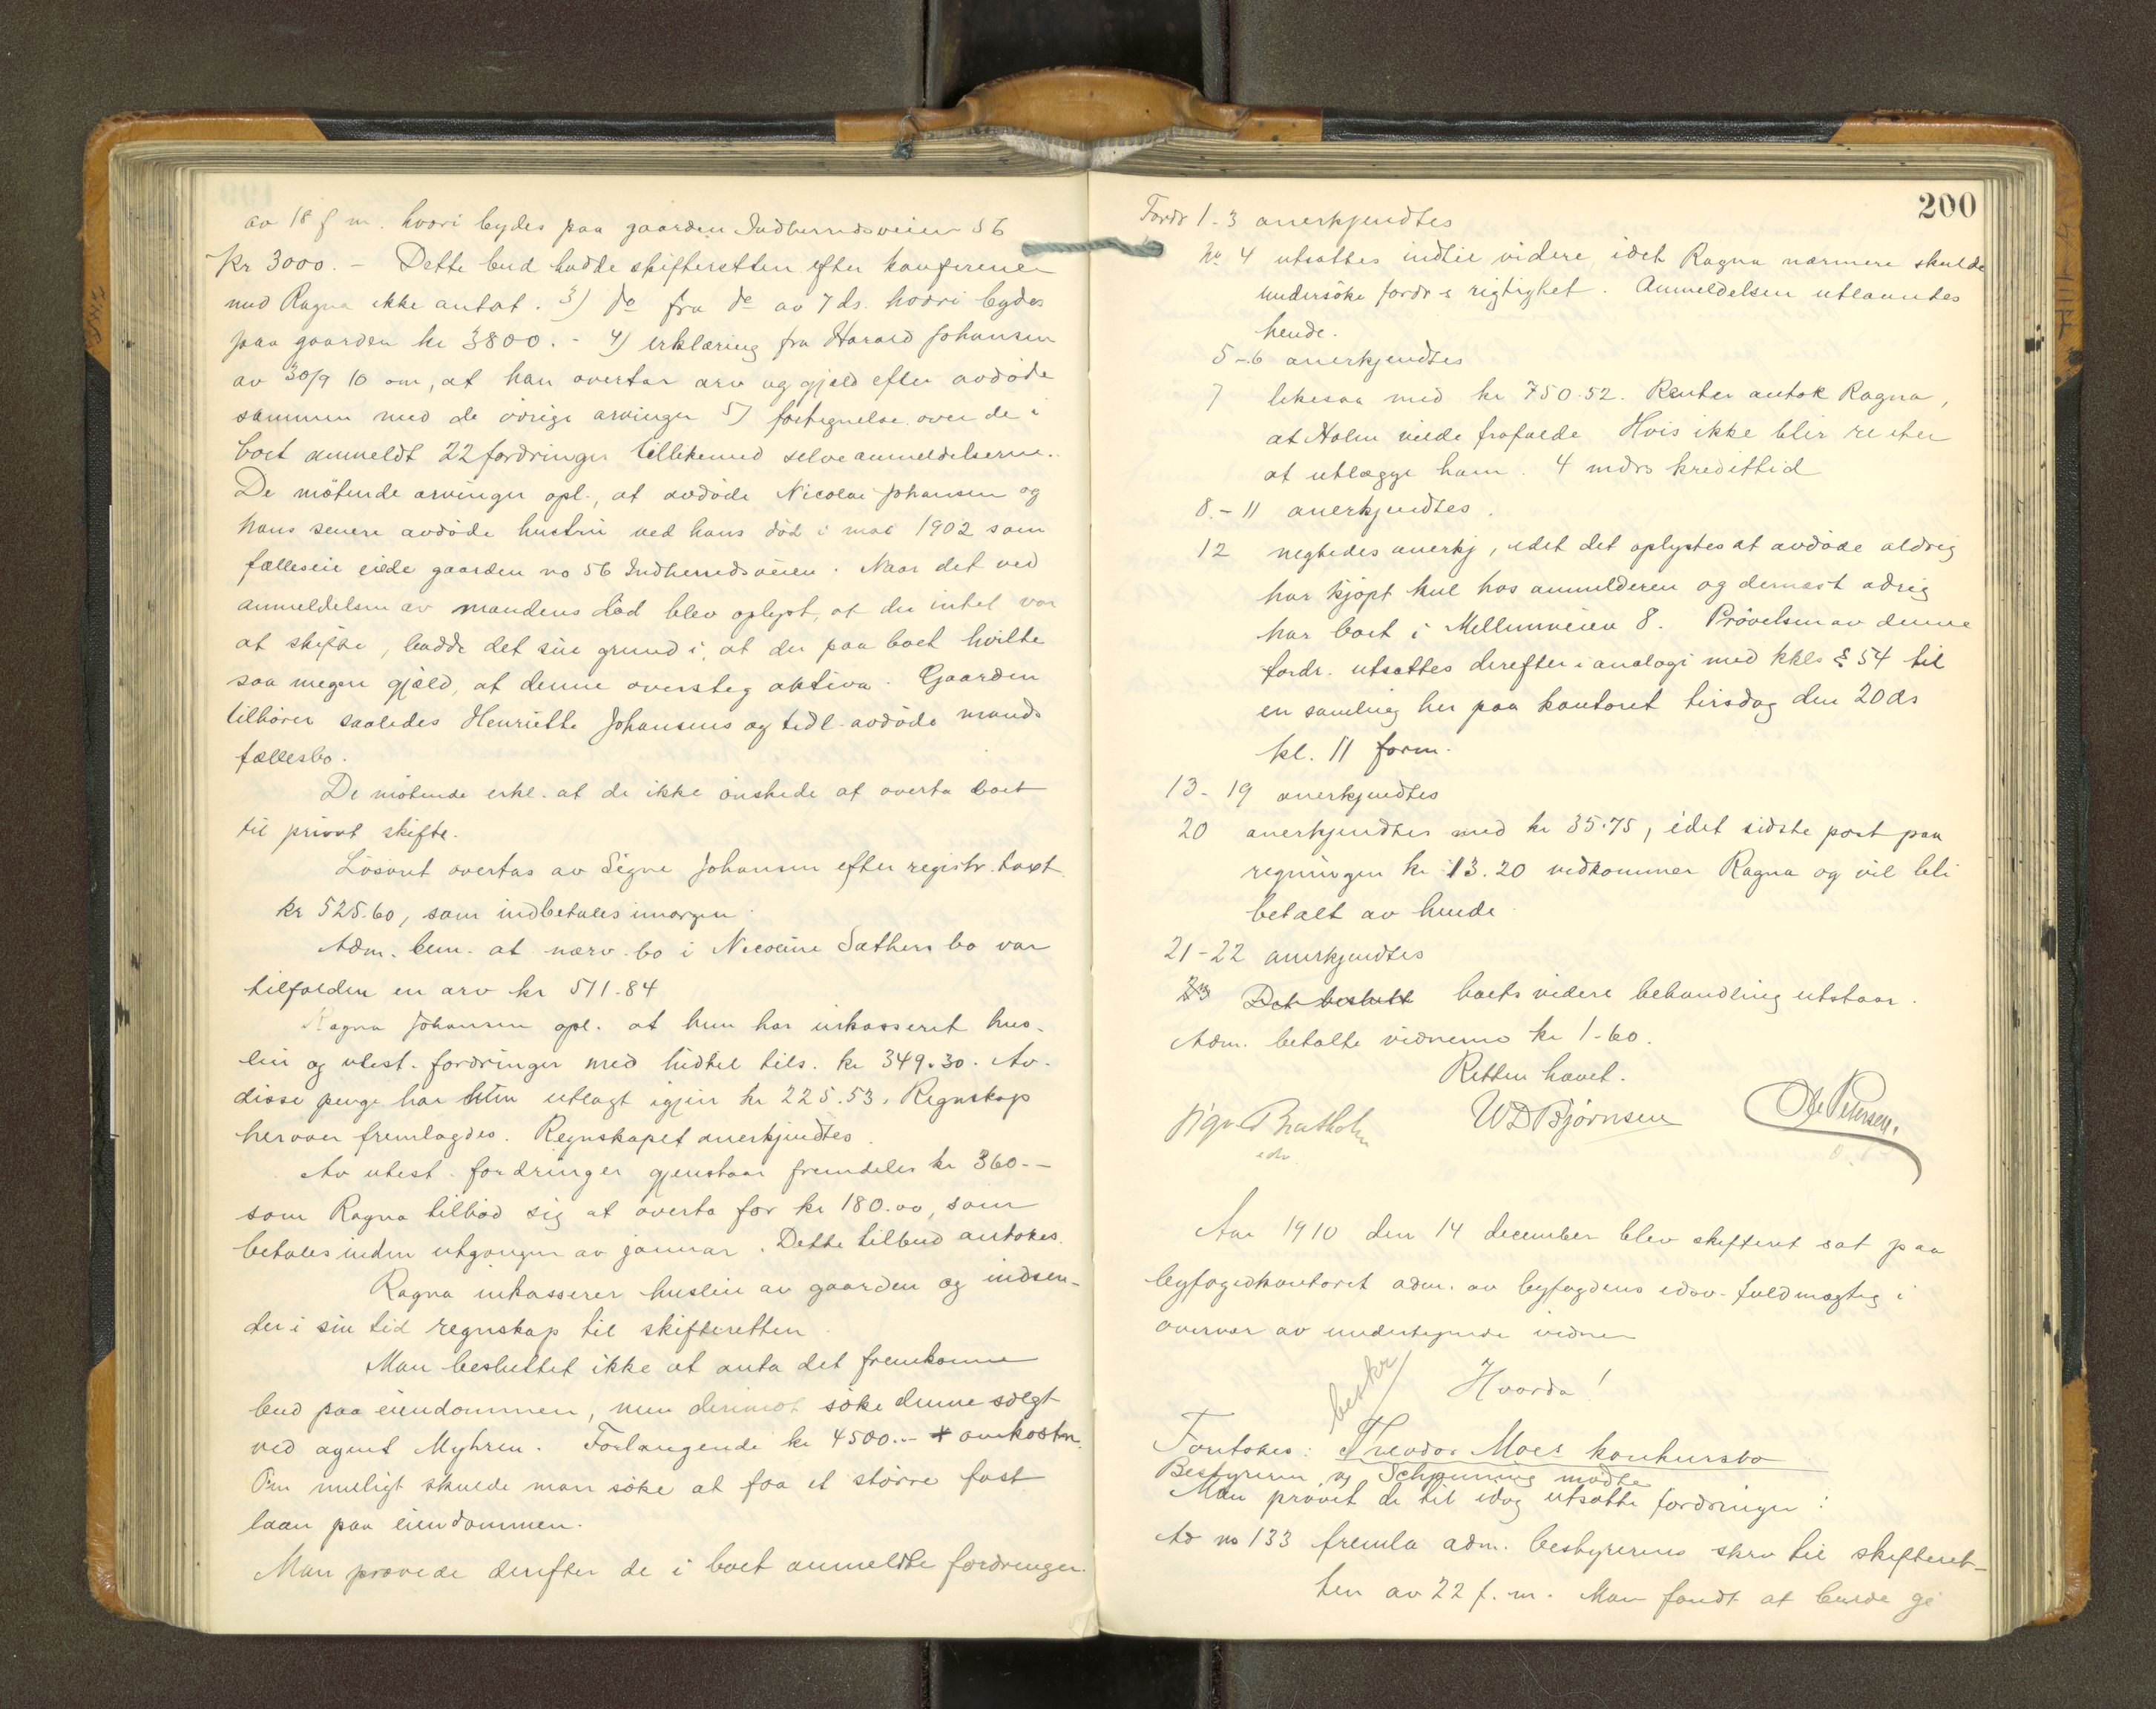 av 18 f m. hvori bydes paa gaarden Indherredsveien 56
Kr 3000. – Dette bud hadde skifteretten efter konference
med Ragna ikke antat. 3) do fra do av 7 ds. hvori bydes
paa gaarden kr 3800. – 4) erklæring fra Harald Johansen
av 30/9 10 om, at han overtar arv og gjæld efter avdöde
sammen med de övrige arvinger 5) fortegnelse over de i
boet anmeldt 22 fordringer tillikemed selve anmeldelserne.
De mötende arvinger opl., at avdöde Nicolai Johansen og
hans senere avdöde hustru ved hans död i mai 1902 som
fælleseie eiede gaarden no 56 Indherredsveien. Naar det ved
anmeldelsen av mandens död blev oplyst, at der intet var
at skifte, hadde det sin grund i, at der paa boet hvilte
saa megen gjæld, at denne oversteg aktiva. Gaarden
tilhörer saaledes Henriette Johansens og tidl. avdöde mands
fællesbo.
De mötende erkl. at de ikke önskede at overta boet
til privat skifte.
Lösöret overtas av Signe Johansen efter registr. taxt
kr 525.60, som indbetales imorgen.
Adm. bem. at nærv. bo i Nicoline Sæthers bo var
tilfalden en arv kr 511.84
Ragna Johansen opl. at hun har inkasseret hus-
leie og utest. fordringer med hidtil tils. kr 349.30. Av
disse penge har hun utlagt igjen kr 225.53. Regnskap
herover fremlagdes. Regnskapet anerkjendtes.
Av utest. fordringer gjenstaar fremdeles kr 360.–
som Ragna tilböd sig at overta for kr 180.00, som
betales inden utgangen av januar. Dette tilbud antokes.
Ragna inkasserer husleie av gaarden og indsen-
der i sin tid regnskap til skifteretten.
Man besluttet ikke at anta det fremkomne
bud paa eiendommen, men derimot söke denne solgt
ved agent Myhren. Forlangende kr 4500.– + omkostn.
Om muligt skulde man söke at faa et större fast
laan paa eiendommen.
Man prövede derefter de i boet anmeldte fordringer.
200
Fordr 1-3 anerkjendtes
No 4 utsattes indtil videre, idet Ragna nærmere skulde
undersöke fordr s rigtighet. Anmeldelsen utlaantes
hende.
5-6 anerkjendtes
7 likesaa med kr 750.52. Renter antok Ragna,
at Holm vilde frafalde Hvis ikke blir
at utlægge ham. 4 mdrs kredittid
8.-11 anerkjendtes.
12 negtedes anerkj, idet det oplystes at avdöde aldrig
har kjöpt kul hos anmelderen og dernæst aldrig
har boet i Mellemveien 8. Prövelsen av denne
fordr. utsattes derefter i analogi med kkl §54 til
en samling her paa kontoret tirsdag den 20 ds
kl. 11 form.
13-19 anerkjendtes
20 anerkjendtes med kr 35.75, idet sidste post paa
regningen kr 13.20 vedkommer Ragna og vil bli
betalt av hende.
21-22 anerkjendtes
23 Det beslutt boets videre behandling utstaar.
Adm. betalte vidnerne kr 1.60.
Retten hævet.
Sigv Bratholm
edv.
WD Björnsen
Ole Petersen.
Aar 1910 den 14 december blev skifteret sat paa
byfogedkontoret adm. av byfogdens edsv. fuldmægtig i
overvær av undertegnede vidner
Hvorda!
beskr
Foretokes: Theodor Moes konkursbo
Bestyreren og Schjenning mödte
Man prövet de til idag utsatte fordringer:
Ad no 133 fremla adm. bestyrerens skr til skifteret-
ten av 22 f. m. Man fandt at burde gi